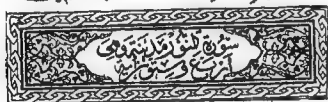 سورة النور مدنية وهي
أربع وستون آية